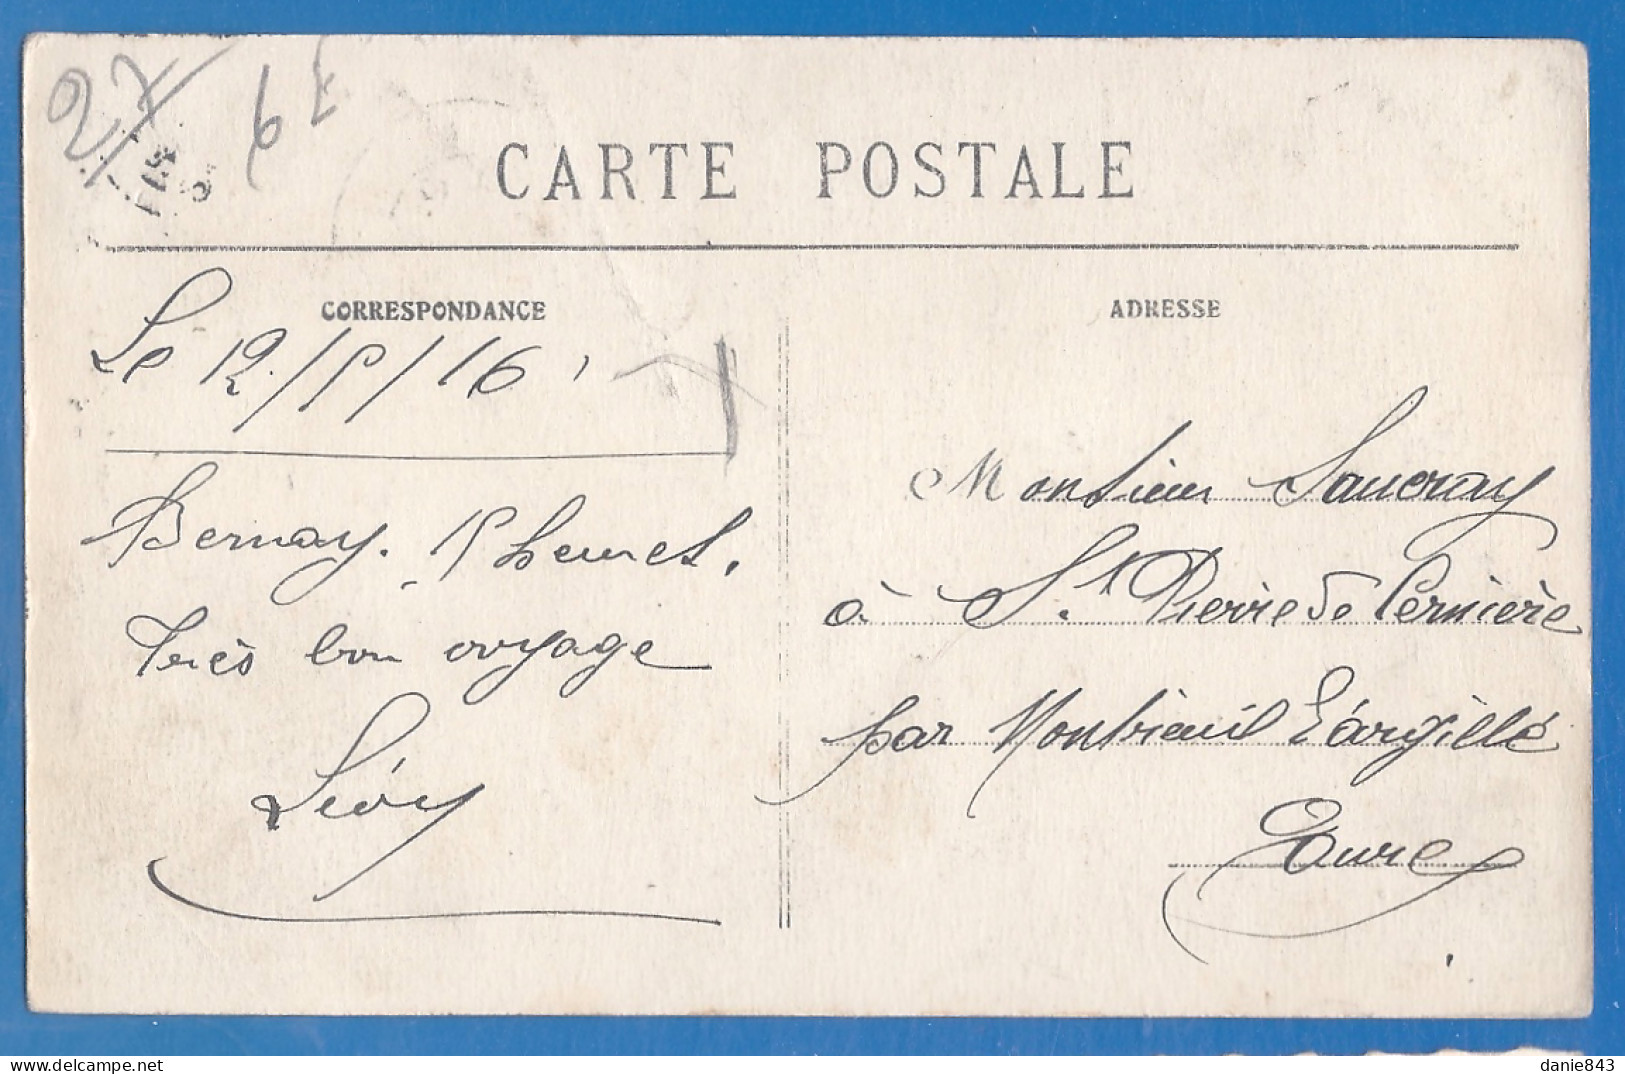 27
6E
CARTE POSTALE
CORRESPONDANCE
ADRESSE
Le 12/5/16
Bernay. 5 heures.
Très bon voyage
Monsieur
à St Pierre de Cernière
par Montreuil L'argillé
Eure
danie843